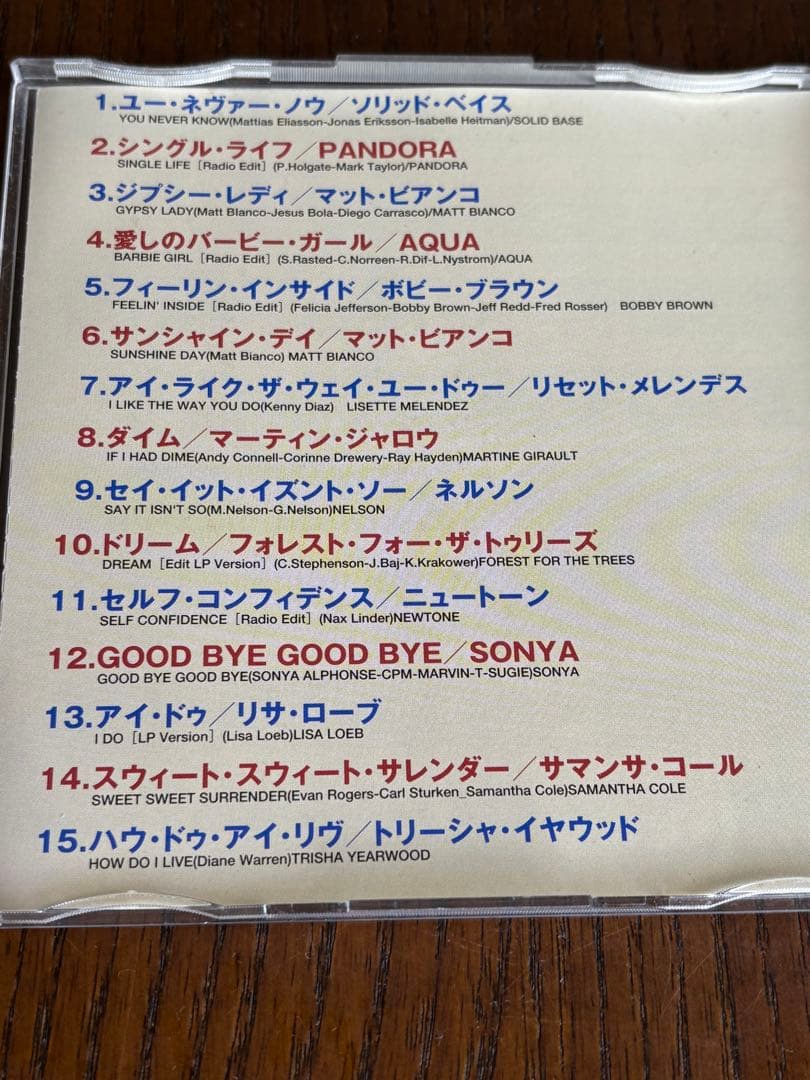 1.ユー・ネヴァー・ノウ／ソリッド・ベイス
YOU NEVER KNOW(Mattias Eliasson-Jonas Eriksson-Isabelle Heitman)/SOLID BASE
2.シングル・ライフ／PANDORA
SINGLE LIFE［Radio Edit］(P.Holgate-Mark Taylor)/PANDORA
3.ジプシー・レディ／マット・ビアンコ
GYPSY LADY(Matt Blanco-Jesus Bola-Diego Carrasco)/MATT BIANCO
4.愛しのバービー・ガール／AQUA
BARBIE GIRL［Radio Edit］(S.Rasted-C.Norreen-R.Dif-L.Nystrom)/AQUA
5.フィーリン・インサイド／ボビー・ブラウン
FEELIN' INSIDE［Radio Edit］(Felicia Jefferson-Bobby Brown-Jeff Redd-Fred Rosser) BOBBY BROWN
6.サンシャイン・デイ／マット・ビアンコ
SUNSHINE DAY(Matt Bianco) MATT BIANCO
7.アイ・ライク・ザ・ウェイ・ユー・ドゥー／リセット・メレンデス
I LIKE THE WAY YOU DO(Kenny Diaz) LISETTE MELENDEZ
8.ダイム／マーティン・ジャロウ
IF I HAD DIME(Andy Connell-Corinne Drewery-Ray Hayden)MARTINE GIRAULT
9.セイ・イット・イズント・ソー／ネルソン
SAY IT ISN'T SO(M.Nelson-G.Nelson)NELSON
10.ドリーム／フォレスト・フォー・ザ・トゥリーズ
DREAM［Edit LP Version］(C.Stephenson-J.Baj-K.Krakower)FOREST FOR THE TREES
11.セルフ・コンフィデンス／ニュートーン
SELF CONFIDENCE［Radio Edit］(Nax Linder)NEWTONE
12.GOOD BYE GOOD BYE／SONYA
GOOD BYE GOOD BYE(SONYA ALPHONSE-CPM-MARVIN-T-SUGIE)SONYA
13.アイ・ドゥ／リサ・ローブ
I DO［LP Version］(Lisa Loeb)LISA LOEB
14.スウィート・スウィート・サレンダー／サマンサ・コール
SWEET SWEET SURRENDER(Evan Rogers-Carl Sturken_Samantha Cole)SAMANTHA COLE
15.ハウ・ドゥ・アイ・リヴ／トリーシャ・イヤウッド
HOW DO I LIVE(Diane Warren)TRISHA YEARWOOD